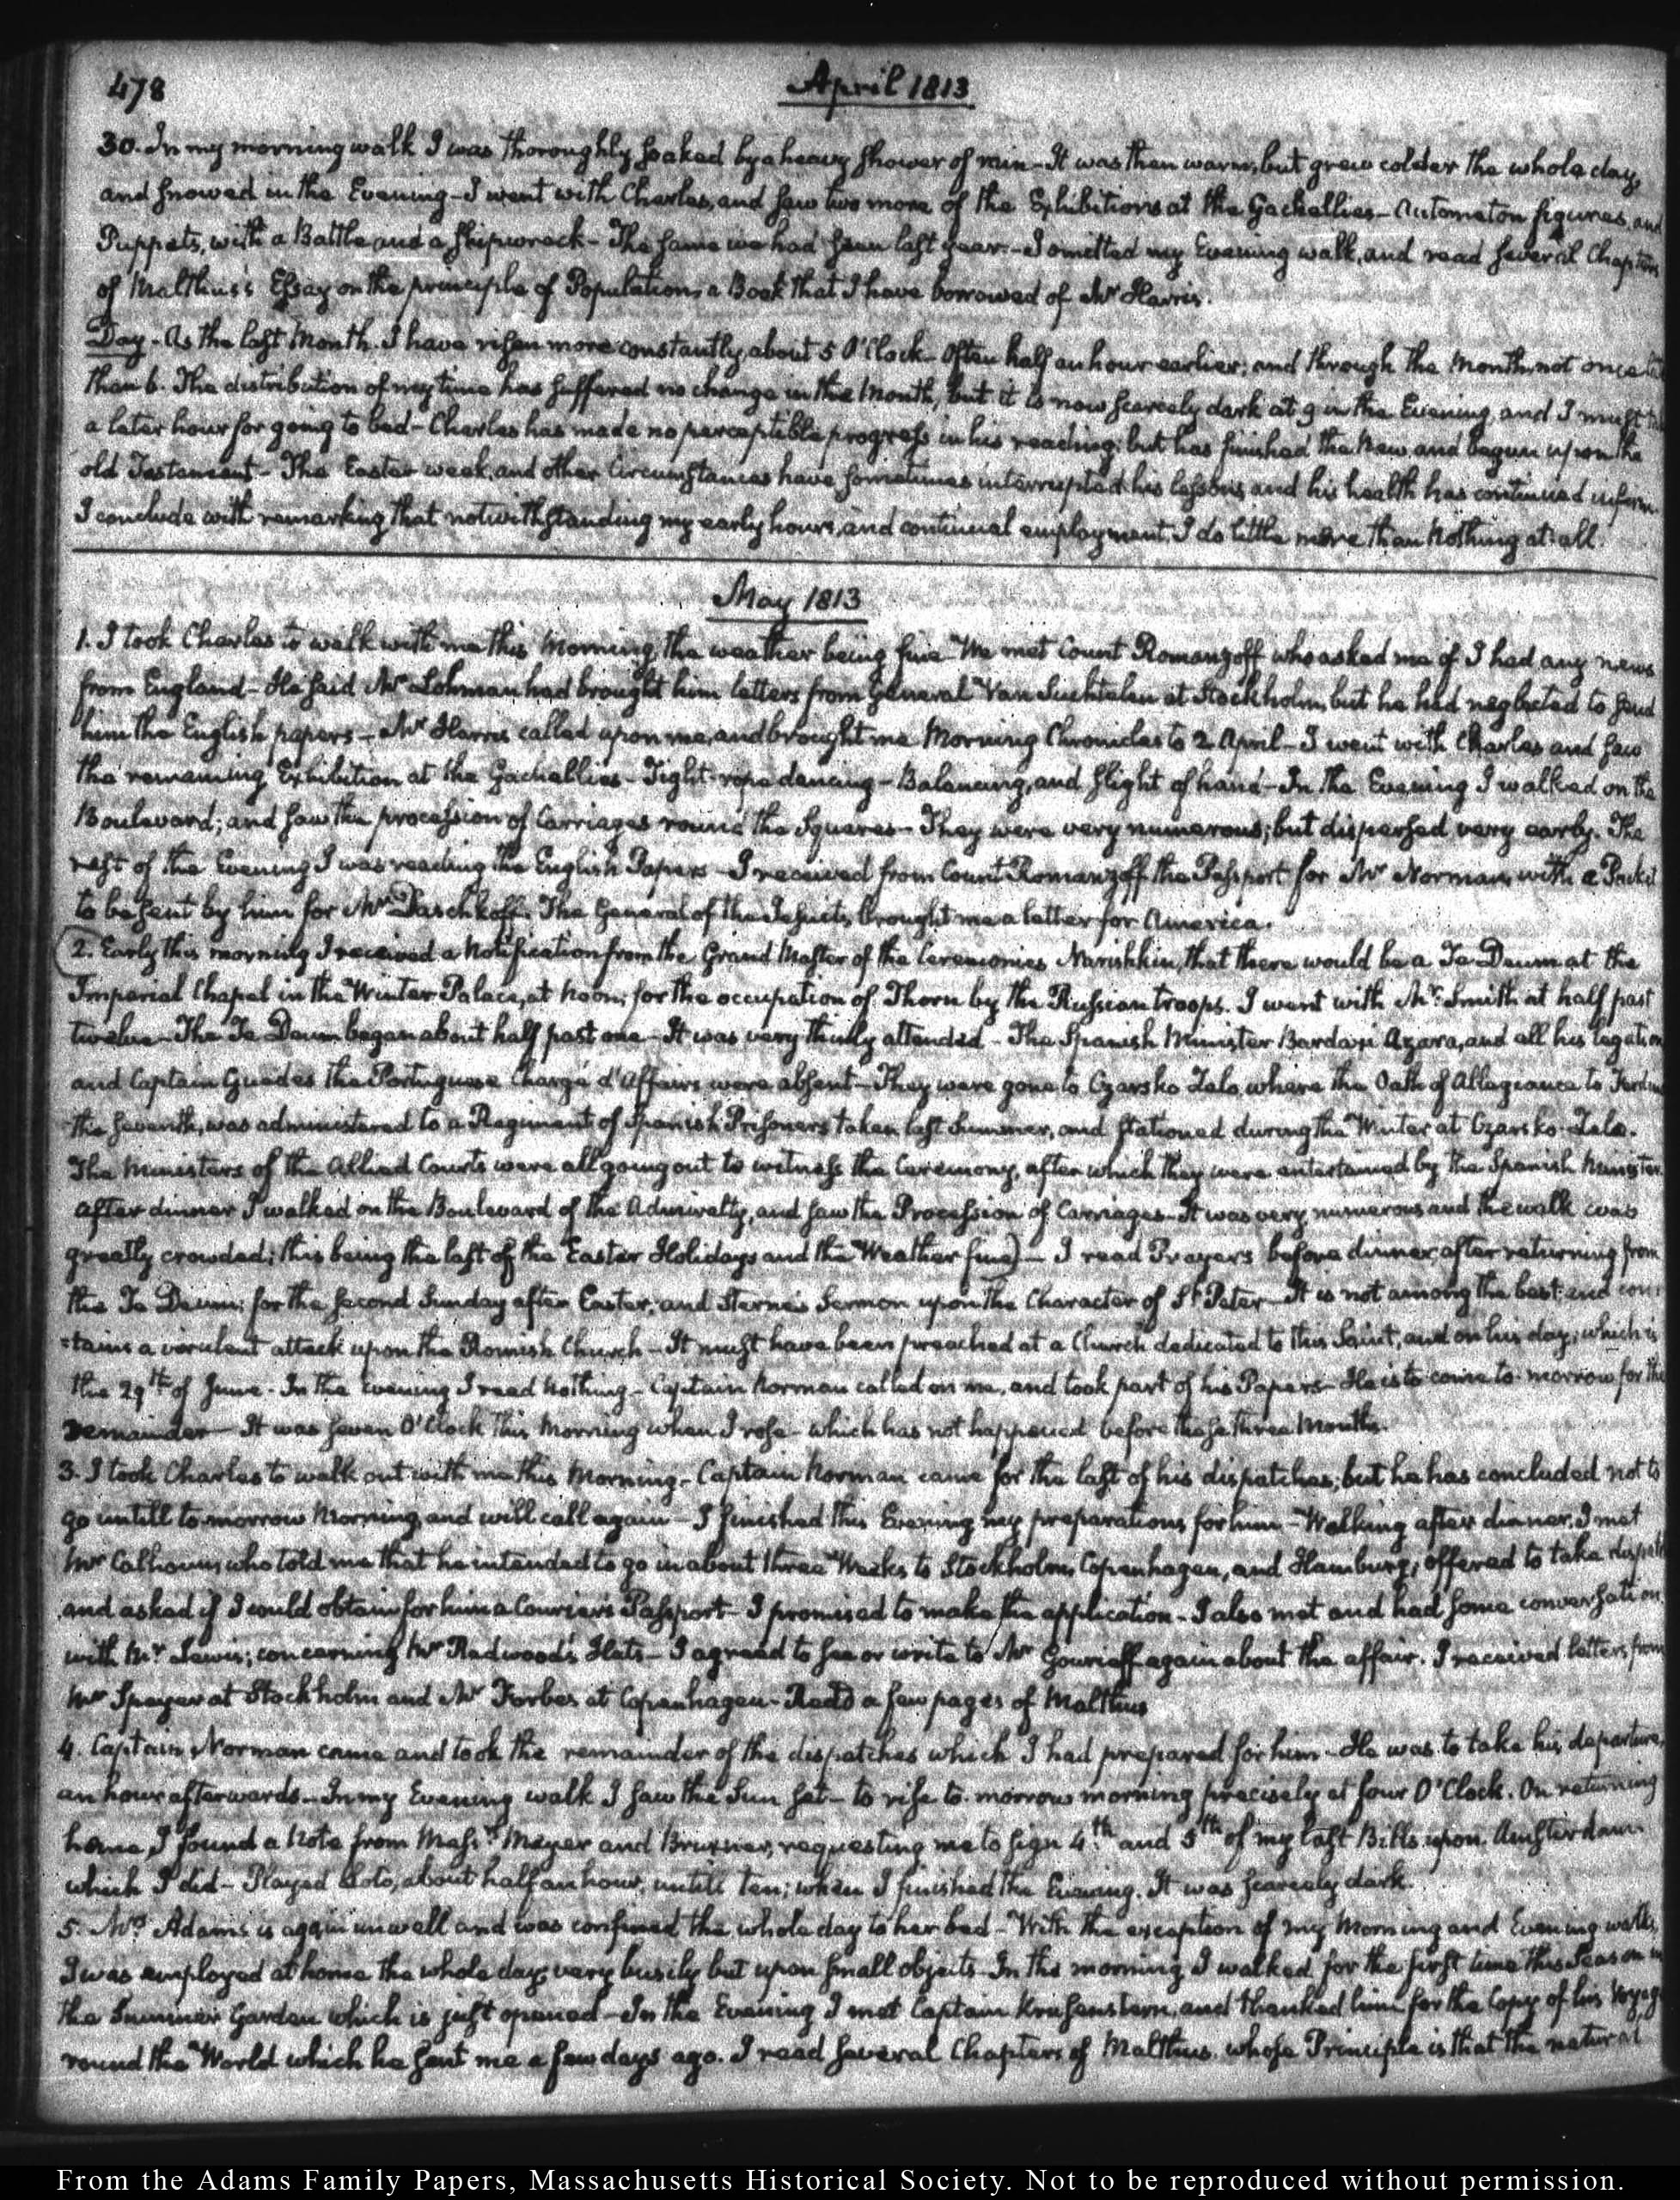 478
April 1813
30. In my morning walk I was thoroughly soaked by a heavy shower of rain – It was then warm, but grew colder the whole day,
and snowed in the Evening – I went with Charles, and saw two more of the Exhibitions at the Gachellies – Automaton figures, and
Puppets, with a Battle and a shipwreck – The same we had seen last year. – I omitted my Evening walk, and read several Chapters
of Malthus's Essay on the principle of Population, a Book that I have borrowed of Mr Harris.
Day – As the last Month. I have risen more constantly, about 5 O'Clock – Often half an hour earlier; and through the Month, not once
than 6. The distribution of my time has suffered no change in the Month, but it is now scarcely dark at 9 in the Evening, and I must
a later hour for going to bed – Charles has made no perceptible progress in his reading; but has finished the New, and begun upon the
old Testament – The Easter week, and other Circumstances have sometimes interrupted his lessons, and his health has continued infirm.
I conclude with remarking that notwithstanding my early hours, and continual employment, I do little more than Nothing at all.
May 1813
1. I took Charles to walk with me this Morning, the weather being fine – We met Count Romanzoff who asked me if I had any news
from England – He said Mr Lohman had brought him letters from General Van Suchtelen at Stockholm, but he had neglected to send
him the English papers – Mr Harris called upon me, and brought me Morning Chronicles to 2 April – I went with Charles and saw
the remaining Exhibition at the Gachellies – Tight-rope dancing – Balancing, and slight of hand – In the Evening I walked on the
Boulevard; and saw the procession of Carriages round the Squares – They were very numerous; but dispersed very early. The
rest of the Evening I was reading the English Papers – I received from Count Romanzoff the Passport for Mr Norman, with a Packet
to be sent by him for Mr Daschkoff. The General of the Jesuits, brought me a letter for America.
2. Early this morning I received a Notification from the Grand Master of the Ceremonies Narishkin, that there would be a Te Deum at the
Imperial Chapel in the Winter Palace, at Noon; for the occupation of Thorn by the Russian troops. I went with Mr Smith at half past
twelve – The Te Deum began about half past one – It was very thinly attended – The Spanish Minister Bardaxi Azara, and all his legation
and Captain Guedes the Portuguese Chargé d'Affaires were absent – They were gone to Czarsko Zelo, where the Oath of Allegiance to
the seventh, was administered to a Regiment of Spanish Prisoners taken last Summer, and stationed during the Winter at Czarsko-Zelo.
The Ministers of the Allied Courts were all going out to witness the Ceremony, after which they were entertained by the Spanish Minister.
After dinner I walked on the Boulevard of the Admiralty, and saw the Procession of Carriages – It was very numerous and the walk was
greatly crowded; this being the last of the Easter Holidays and the Weather fine) – I read Prayers before dinner, after returning from
the Te Deum; for the second Sunday after Easter; and Sterne's Sermon upon the Character of St Peter – It is not among the best; and con-
=tains a virulent attack upon the Romish Church – It must have been preached at a Church dedicated to this Saint, and on his day; which is
the 29th of June – In the Evening I read Nothing – Captain Norman called on me, and took part of his Papers – He is to come to-morrow for the
remainder – It was seven O'Clock this Morning when I rose – which has not happened before these three Months.
3. I took Charles to walk out with me this Morning – Captain Norman came for the last of his dispatches; but he has concluded not to
go untill to-morrow Morning, and will call again – I finished this Evening my preparations for him – Walking after dinner, I met
Mr Calhoun, who told me that he intended to go in about three Weeks to Stockholm, Copenhagen, and Hamburg; offered to take
and asked if I could obtain for him a Courier's Passport – I promised to make the application – I also met and had some conversation
with Mr Lewis; concerning Mr Redwood's Hats – I agreed to see or write to Mr Gourieff again about the affair. I received letters from
Mr Speyer at Stockholm and Mr Forbes at Copenhagen – Read a few pages of Malthus
4. Captain Norman came and took the remainder of the dispatches which I had prepared for him – He was to take his departure,
an hour afterwards – In my Evening walk I saw the Sun set – to rise to-morrow morning precisely at four O'Clock. On returning
home, I found a Note from Messrs Meyer and Bruxner, requesting me to sign 4th and 5th of my last Bills upon Amsterdam
which I did – Played Loto, about half an hour, untill ten; when I finished the Evening. It was scarcely dark.
5. Mrs Adams is again unwell and was confined the whole day to her bed – With the exception of my Morning and Evening walks,
I was employed at home the whole day, very busily but upon small objects – In the morning I walked for the first time this Season in
the Summer Garden which is just opened – In the Evening I met Captain Krusenstern, and thanked him for the Copy of his Voyage
round the World which he sent me a few days ago. I read several Chapters of Malthus, whose Principle is that the natural
From the Adams Family Papers, Massachusetts Historical Society. Not to be reproduced without permission.